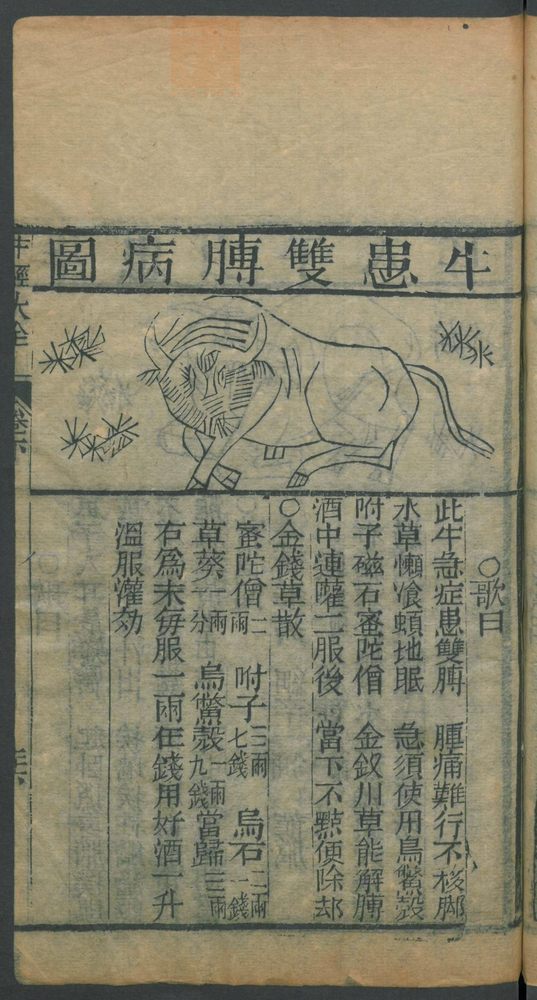 牛患雙膊病圖
○歌曰
此牛急症患雙膊　腫痛難行不梭脚
水草懶飡頼地眠　急須使用烏鱉殼
附子磁石蜜陀僧　金釵川草能解膊
酒中連嚾二服後　當下不㸃便除却
○金錢草散
蜜陀僧二兩　附子三兩七錢　烏石二兩一錢
草葵一兩一分　烏鱉殼一兩九錢　當歸三兩
右爲末每服一兩五錢用好酒一升
溫服灌効
牛經大全
卷六